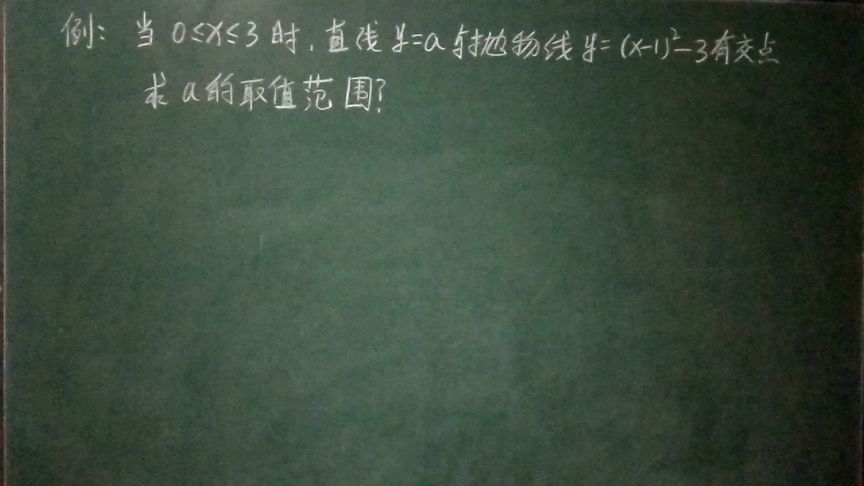 例: 当 0≤x≤3 时, 直线 y=a 与抛物线 y=(x-1)²-3有交点
求 a的取值范围?